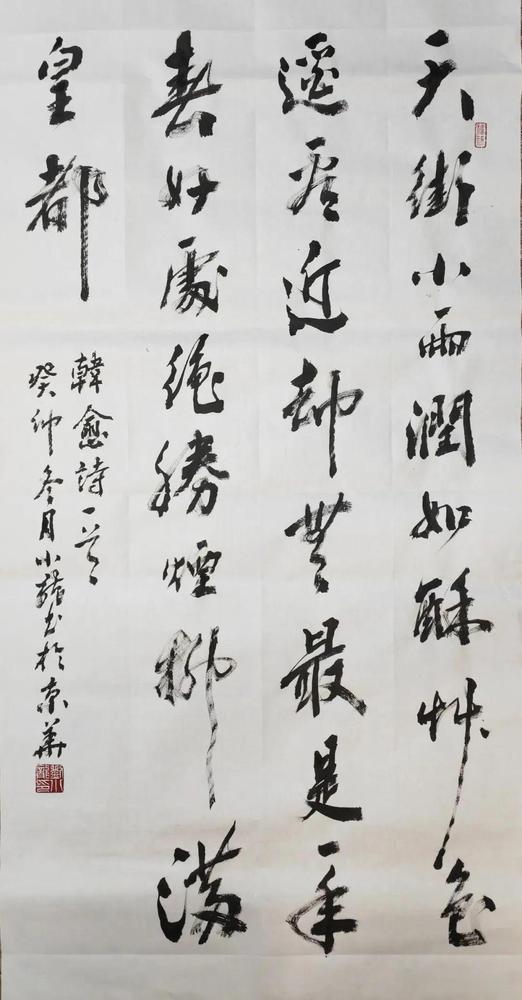 天街小雨潤如酥艸色
遥看近却無最是一年
春好處絶勝煙柳滿
皇都
韓愈詩一首
癸卯冬月小龍书於京華